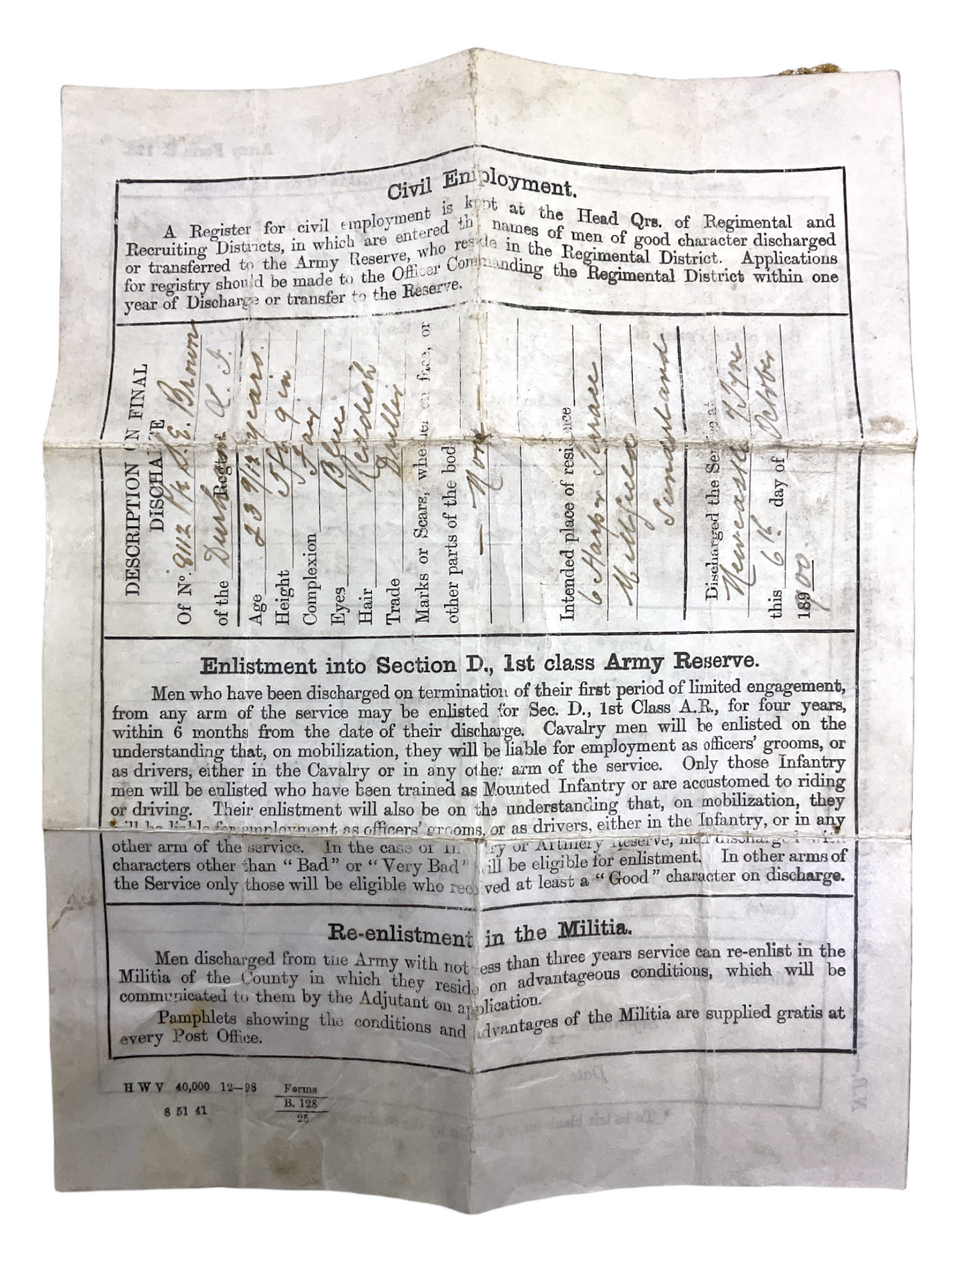 Civil Employment.
A Register for civil employment is kept at the Head Qrs. of Regimental and
Recruiting Districts, in which are entered the names of men of good character discharged
or transferred to the Army Reserve, who reside in the Regimental District. Applications
for registry should be made to the Officer Commanding the Regimental District within one
year of Discharge or transfer to the Reserve.
DESCRIPTION ON FINAL
DISCHARGE
Of No. 8112 E. Brown
of the Durham L. I.
Age 23 9/12 years.
Height 5 ft 9 in
Complexion Fair
Eyes Blue
Hair Reddish
Trade
Marks or Scars, whether on face, or
other parts of the body
— None
Intended place of residence
6 Harper Terrace
Millfield
Sunderland
Discharged the Service at
Newcastle Tyne
this 6th day of October
1900
Enlistment into Section D., 1st class Army Reserve.
Men who have been discharged on termination of their first period of limited engagement,
from any arm of the service may be enlisted for Sec. D., 1st Class A.R., for four years,
within 6 months from the date of their discharge. Cavalry men will be enlisted on the
understanding that, on mobilization, they will be liable for employment as officers' grooms, or
as drivers, either in the Cavalry or in any other arm of the service. Only those Infantry
men will be enlisted who have been trained as Mounted Infantry or are accustomed to riding
or driving. Their enlistment will also be on the understanding that, on mobilization, they
will be liable for employment as officers' grooms, or as drivers, either in the Infantry, or in any
other arm of the service. In the case of or Artillery Reserve, men discharged with
characters other than "Bad" or "Very Bad" will be eligible for enlistment. In other arms of
the Service only those will be eligible who received at least a "Good" character on discharge.
Re-enlistment in the Militia.
Men discharged from the Army with not less than three years service can re-enlist in the
Militia of the County in which they reside on advantageous conditions, which will be
communicated to them by the Adjutant on application.
Pamphlets showing the conditions and advantages of the Militia are supplied gratis at
every Post Office.
H W V 40,000 12—98 Forms
8 51 41 B. 128
25